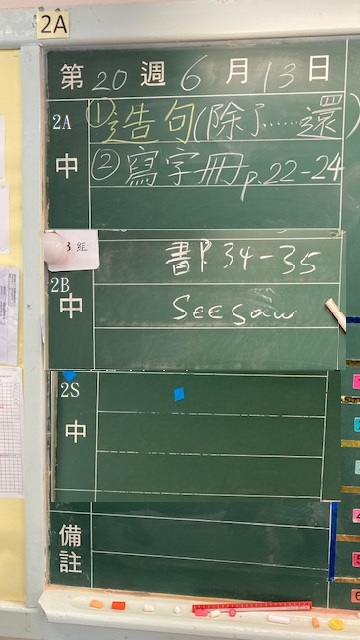 2A
第 20 週 6 月 13 日
2A 中
①造句(除了……還)
②寫字冊p.22-24
3組
2B 中
書P 34-35
Seesaw
2S 中
備註
4
5
6